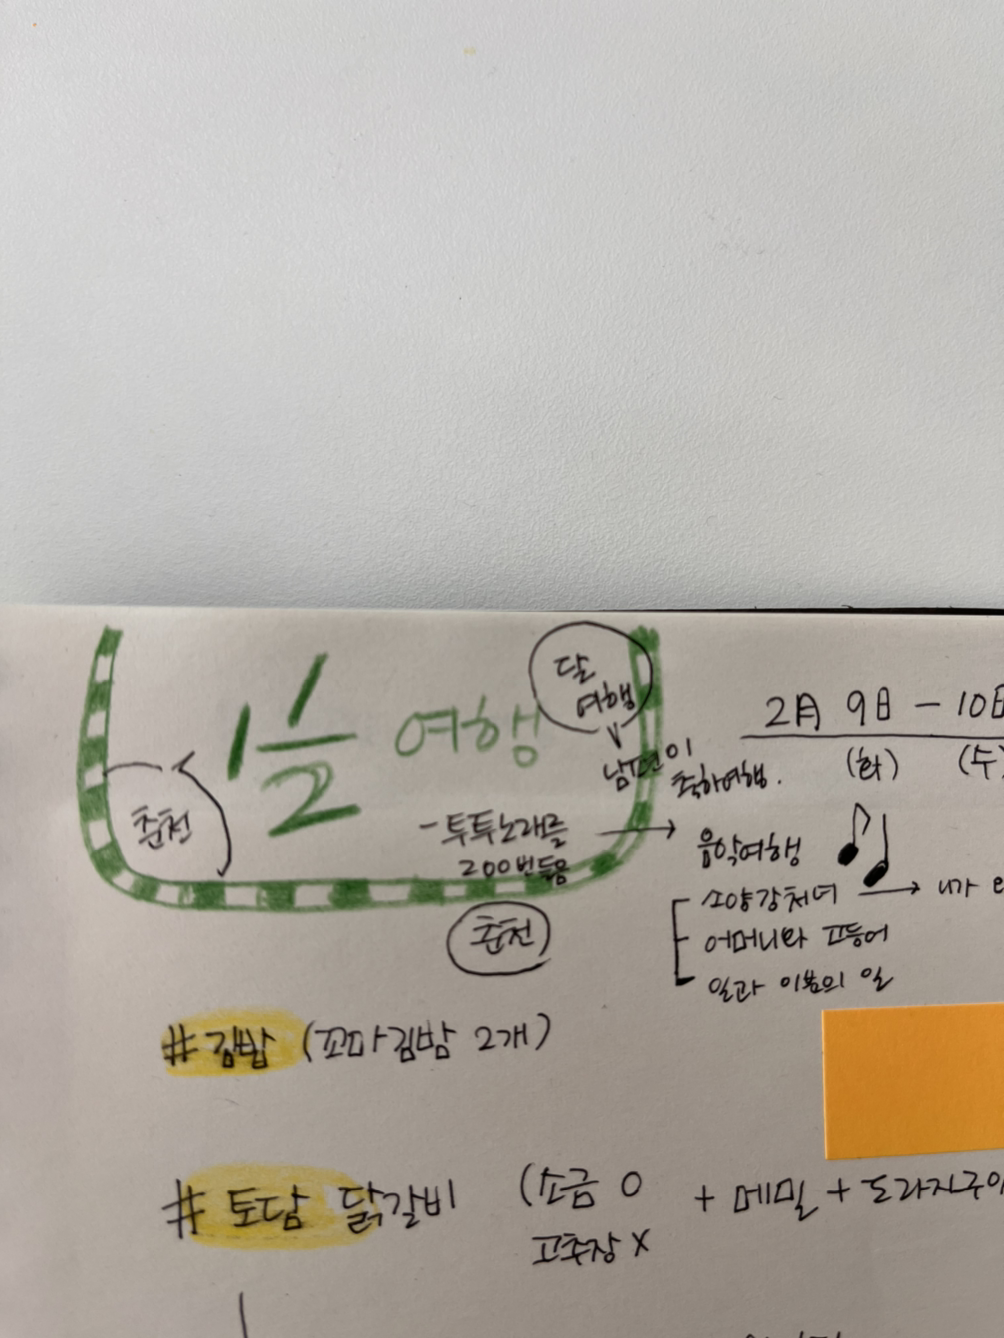 1 1/2 여행
달
여행
남편이
축하여행.
춘천
- 투투노래를
200번들음
춘천
2月 9日 - 10日
(화) (수)
음악여행
소양강처녀 → 내가
어머니와 고등어
일과 이분의 일
# 김밥 (꼬마김밥 2개)
# 토담 닭갈비 (소금 O
고추장 X
+ 메밀 + 도라지구이